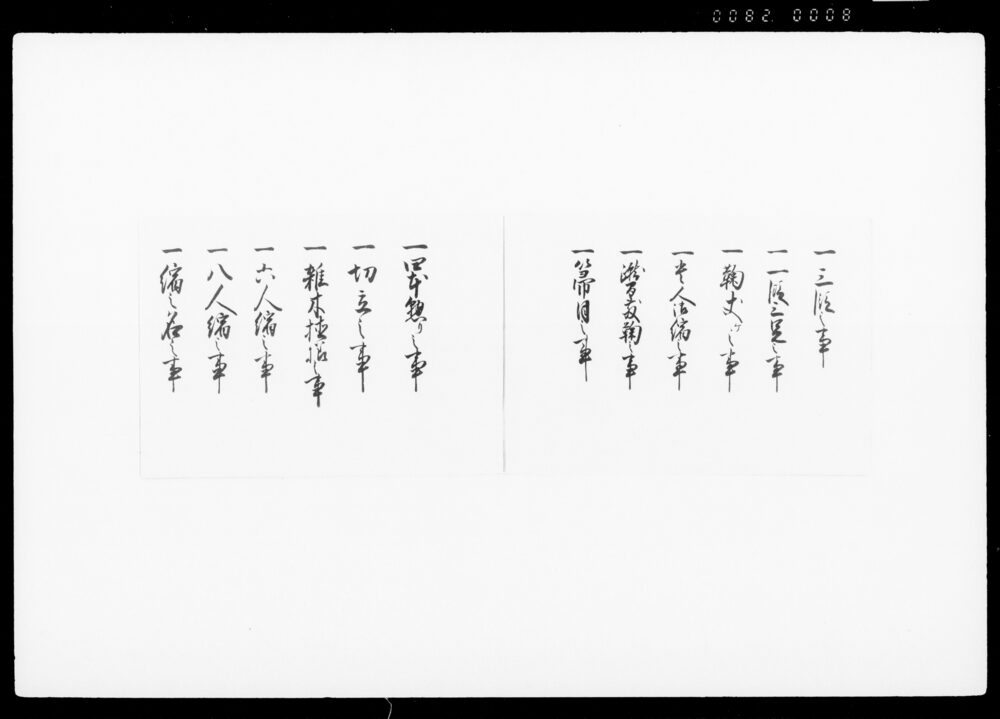 0082 0008
一 三段之事
一 一段三足之事
一 鞠丈ケ之事
一 人 縮之事
一 鞠之事
一 箒目之事
一 四本懸り之事
一 切立之事
一 雑木 之事
一 六人縮之事
一 八人縮之事
一 縮之名之事